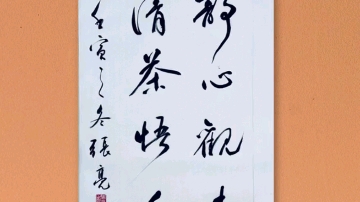 静心觀
清茶悟
壬寅之冬張亮